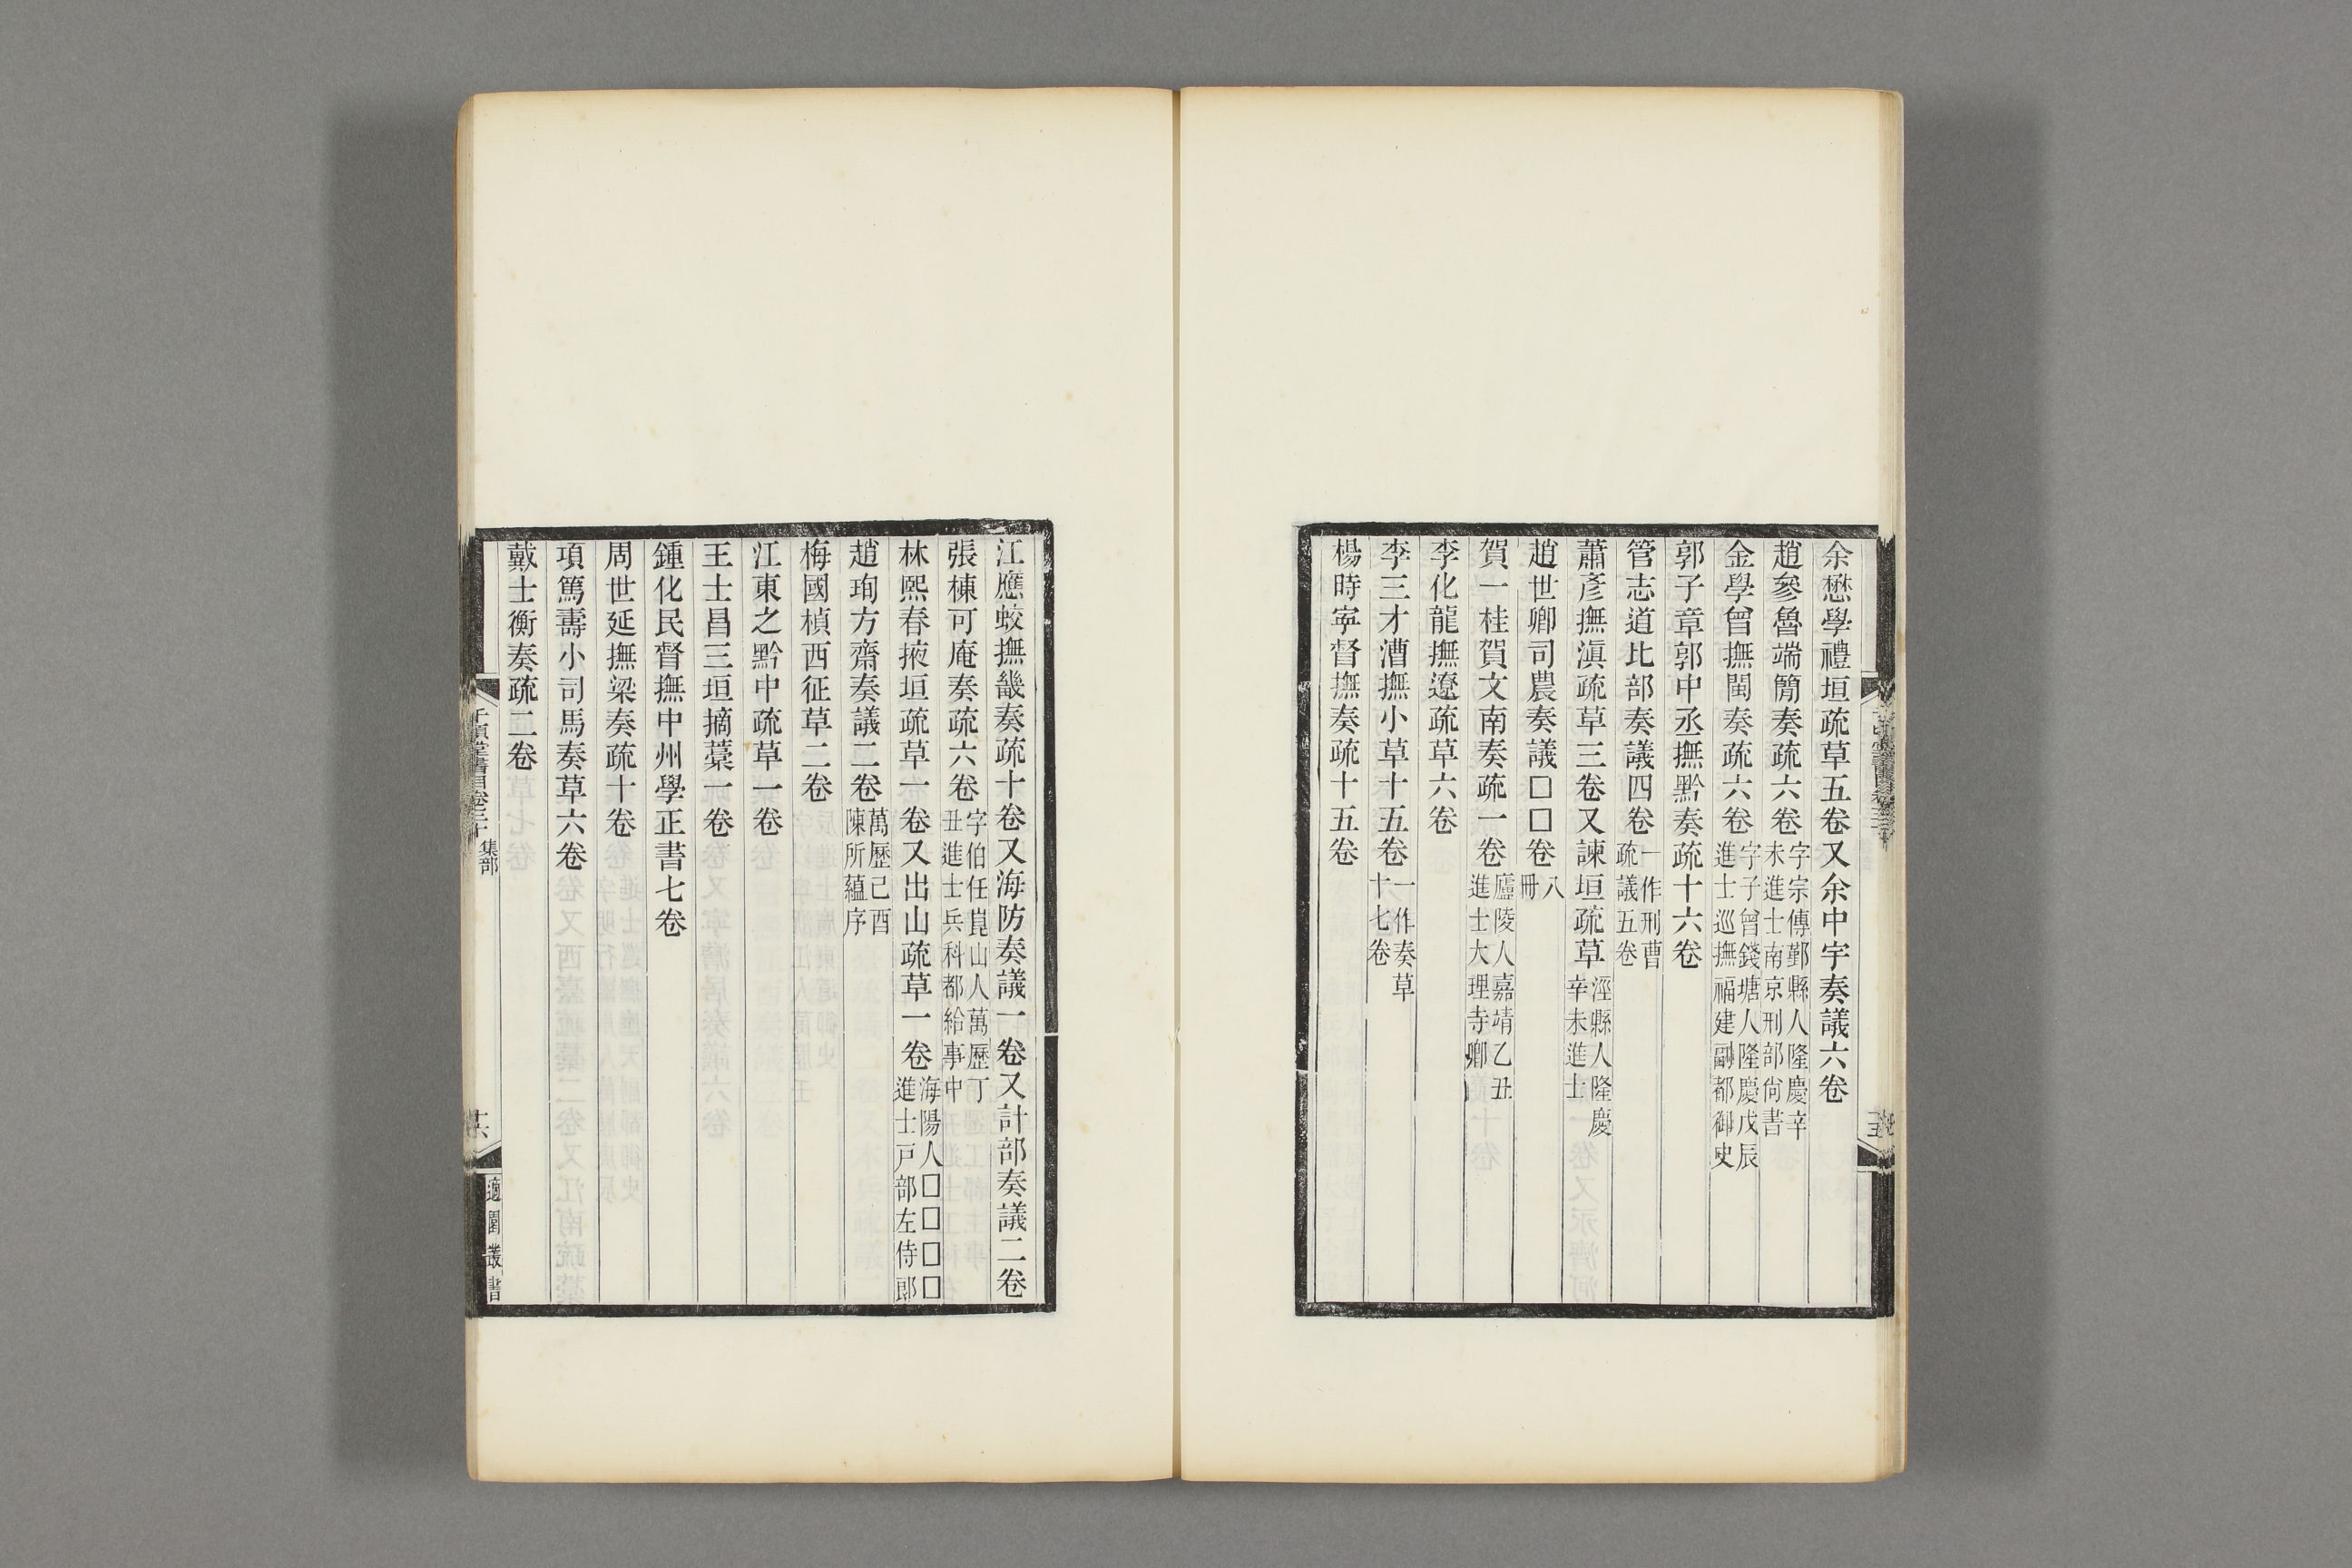 余懋學禮垣疏草五卷又余中宇奏議六卷
趙參魯端簡奏疏六卷字宗傳鄞縣人隆慶辛
未進士南京刑部尙書
金學曾撫閩奏疏六卷字子曾錢塘人隆慶戊辰
進士巡撫福建副都御史
郭子章郭中丞撫黔奏疏十六卷
管志道比部奏議四卷一作刑曹
疏議五卷
蕭彥撫滇疏草三卷又諫垣疏草涇縣人隆慶
辛未進士
趙世卿司農奏議□□卷八
冊
賀一桂賀文南奏疏一卷廬陵人嘉靖乙丑
進士大理寺卿
李化龍撫遼疏草六卷
李三才漕撫小草十五卷一作奏草
十七卷
楊時寧督撫奏疏十五卷
江應蛟撫畿奏疏十卷又海防奏議一卷又計部奏議二卷
張棟可庵奏疏六卷字伯任崑山人萬歷丁
丑進士兵科都給事中
林熙春掖垣疏草一卷又出山疏草一卷海陽人□□□□
進士戸部左侍郎
趙珣方齋奏議二卷萬歷己酉
陳所蘊序
梅國楨西征草二卷
江東之黔中疏草一卷
王士昌三垣摘藁一卷
鍾化民督撫中州學正書七卷
周世延撫梁奏疏十卷
項篤壽小司馬奏草六卷
戴士衡奏疏二卷
千頃堂書目卷三十 集部
十六
適園叢書